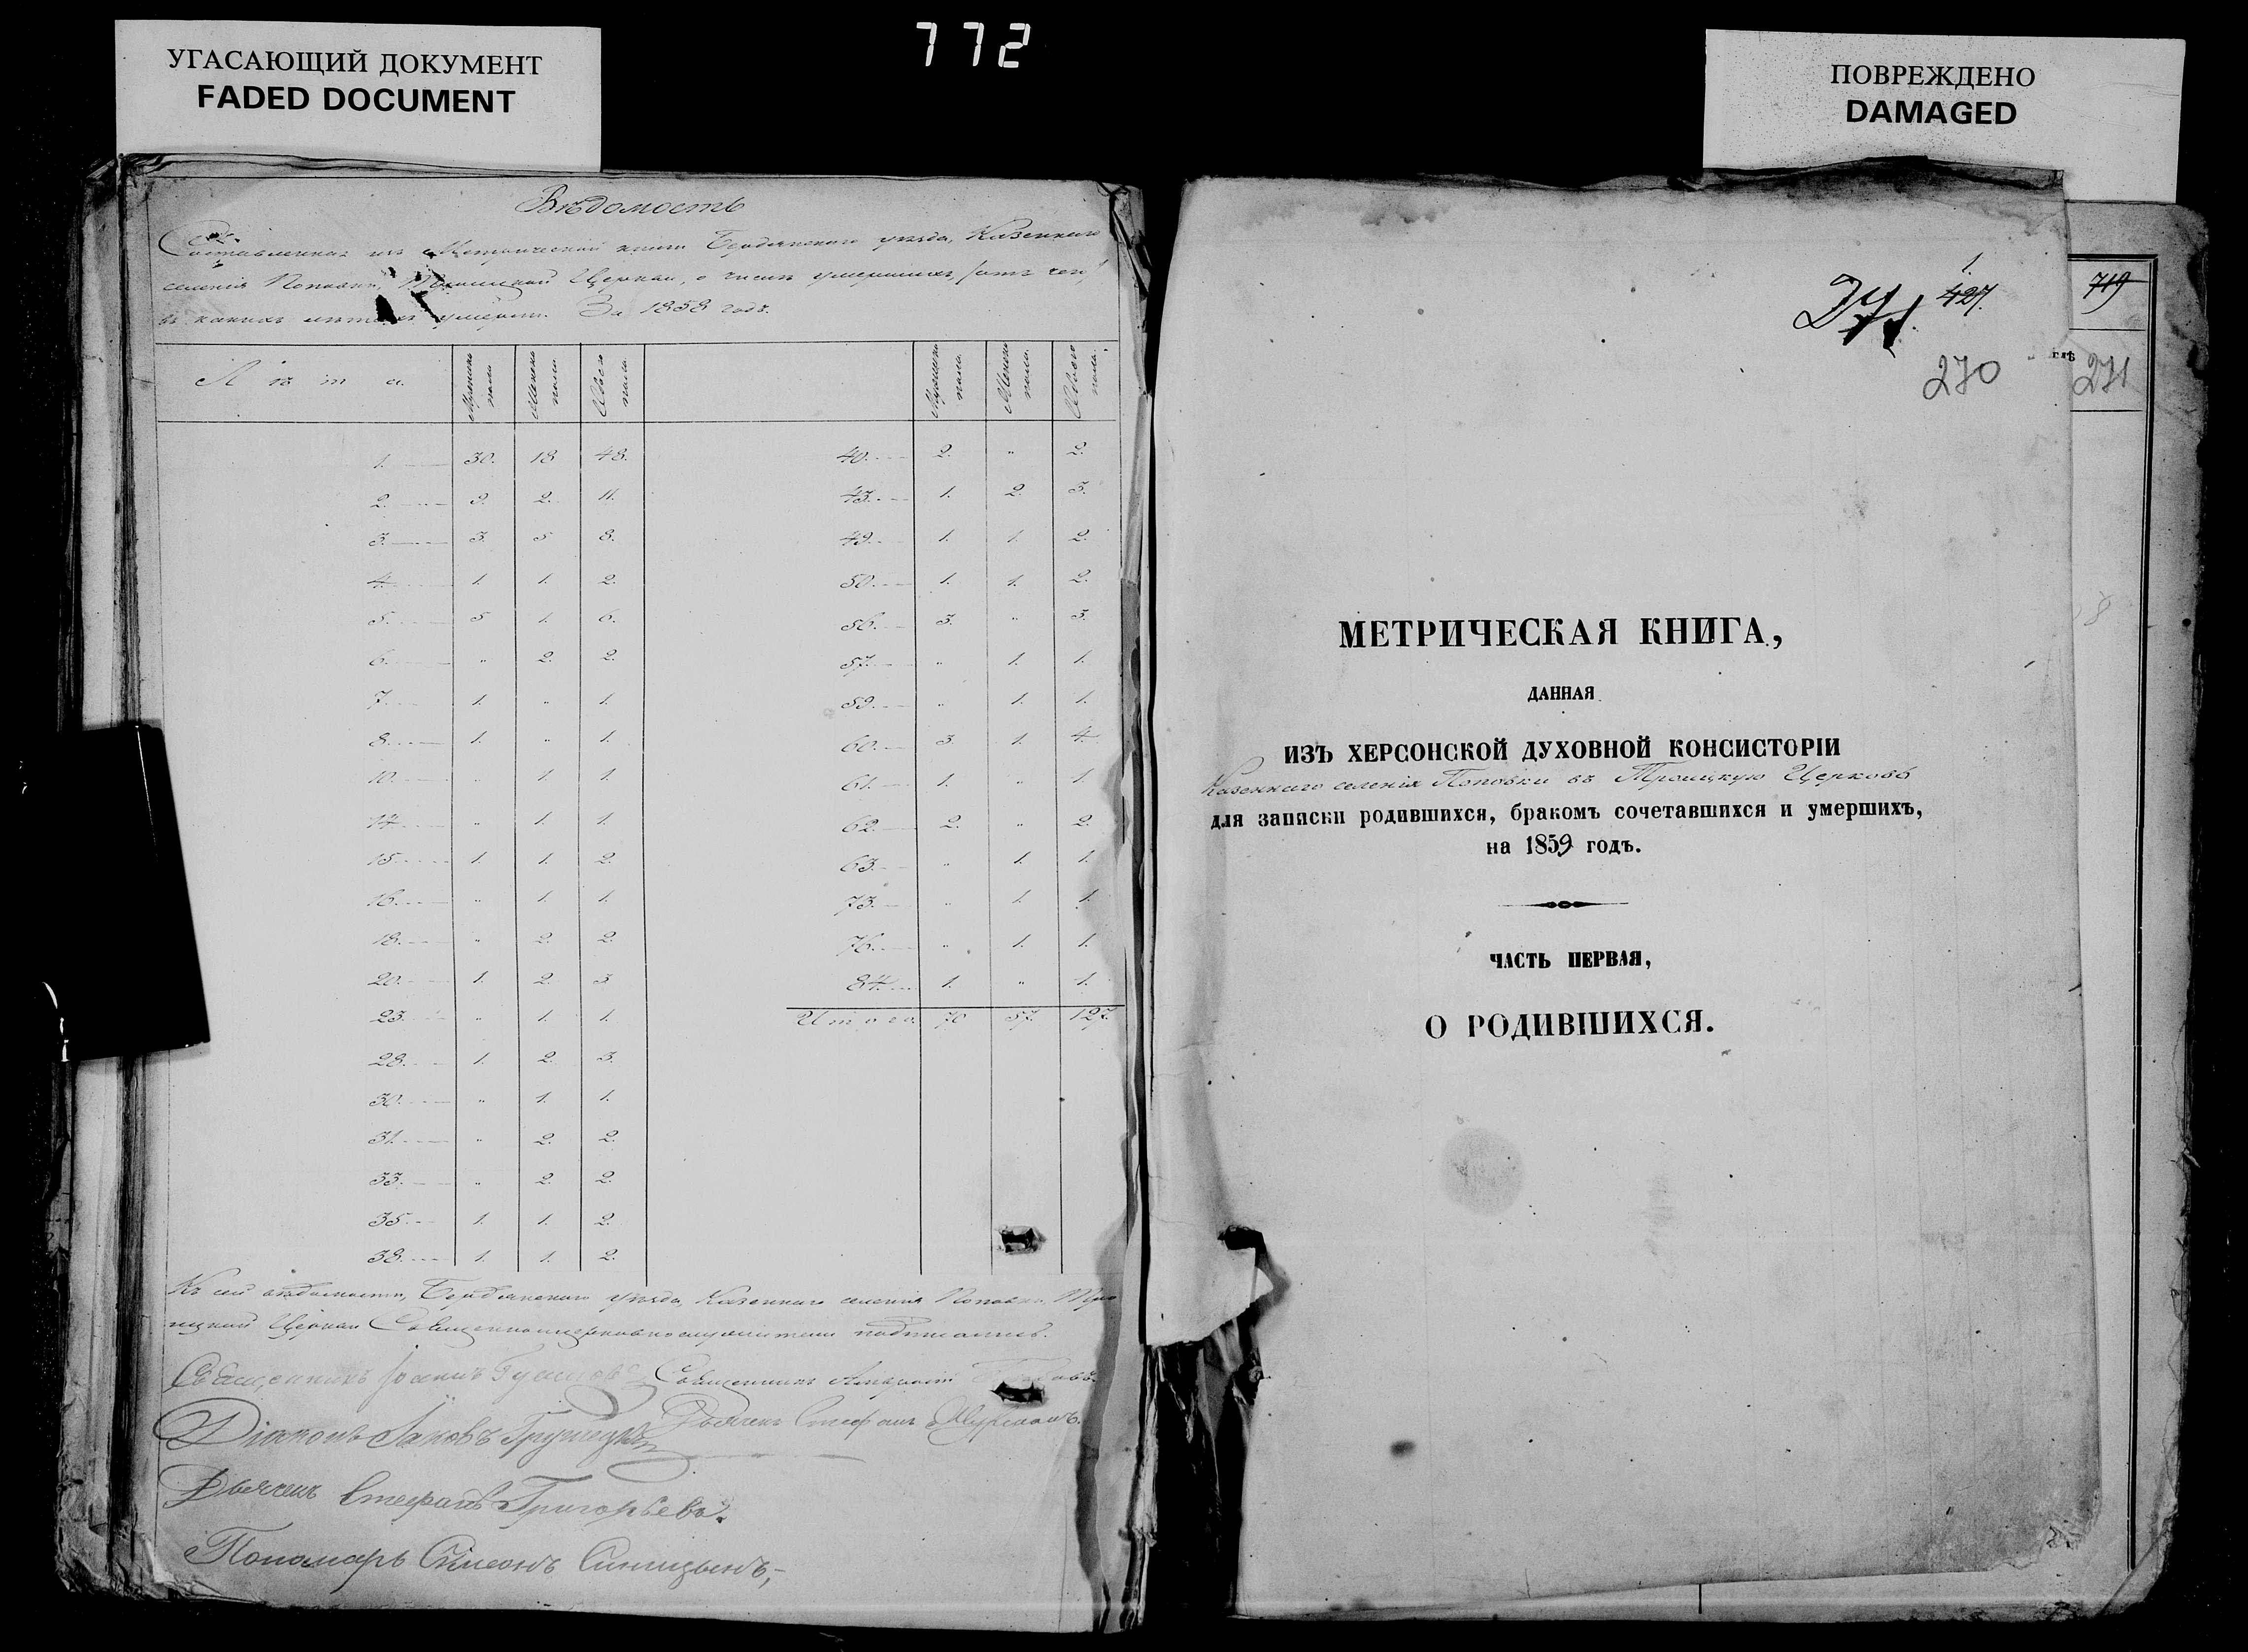 772
УГАСАЮЩИЙ ДОКУМЕНТ
FADED DOCUMENT
ПОВРЕЖДЕНО
DAMAGED
Вѣдомость
Составленная изъ Метрической книги Бердянскаго уѣзда, Казеннаго
селенія Поповки, Троицкой Церкви, о числѣ умершихъ, отъ чего
въ какихъ лѣтахъ умерли. За 1858 годъ.
Лѣта. Мужеска пола Женска пола Обоего пола Мужеска пола. Женска пола. Обоего пола.
1. 30. 18 48. 40. 2. " 2.
2. 9. 2. 11. 43. 1. 2. 3.
3. 3. 5 8. 49. 1. 1. 2.
4. 1. 1. 2. 50. 1. 1. 2.
5. 5 1. 6. 56. 3. " 3.
6. " 2. 2. 57. " 1. 1.
7. 1. " 1. 59. " 1. 1.
8. 1. " 1. 60. 3. 1. 4.
10. " 1. 1. 61. 1. " 1.
14. " 1. 1. 62. 2. " 2.
15. 1. 1. 2. 63. " 1. 1.
16. " 1. 1. 73. " 1. 1.
18. " 2. 2. 76. " 1. 1.
20. 1. 2. 3 84. 1. " 1.
23. " 1. 1. Итого. 70 57. 127.
28. 1. 2. 3.
30. " 1. 1.
31. " 2. 2.
33. " 2. 2.
35. 1. 1. 2.
38. 1. 1. 2.
Къ сей вѣдомости, Бердянскаго уѣзда, Казеннаго селенія Поповки, Тро
ицкой Церкви Священноцерковнослужители подписались.
Священникъ Іоаннъ Священникъ
Діаконъ Іаковъ Грушецкій Дьячекъ Стефанъ
Дьячекъ Стефанъ Григорьевъ.
Пономарь Симеонъ Синицынъ,
1.
427.
270
719
271
МЕТРИЧЕСКАЯ КНИГА,
ДАННАЯ
ИЗЪ ХЕРСОНСКОЙ ДУХОВНОЙ КОНСИСТОРІИ
Казеннаго селенія Поповки въ Троицкую Церковь
для записки родившихся, бракомъ сочетавшихся и умершихъ,
на 1859 годъ.
ЧАСТЬ ПЕРВАЯ,
О РОДИВШИХСЯ.